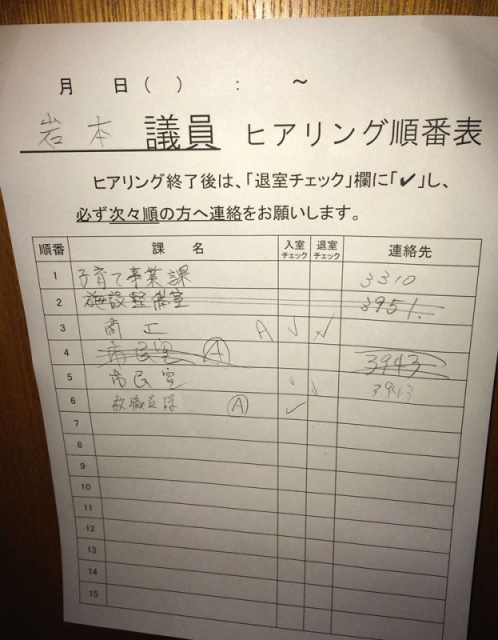 月 日( ) : ～
岩本 議員 ヒアリング順番表
ヒアリング終了後は、「退室チェック」欄に「✓」し、
必ず次々順の方へ連絡をお願いします。
順番 課 名 入室チェック 退室チェック 連絡先
1 子育て事業課 3310
2 施設整備室 3951
3 商工 A ✓ ✓
4 市民室 A 3943
5 市民室 3943
6 教職員課 A ✓
7
8
9
10
11
12
13
14
15